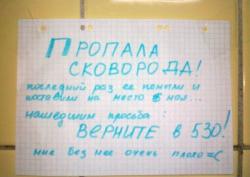 ПРОПАЛА
СКОВОРОДА!
последний раз ее помыли и
поставили на место 8 ноя...
нашедшим просьба:
ВЕРНИТЕ в 530!
мне без нее очень плохо =(